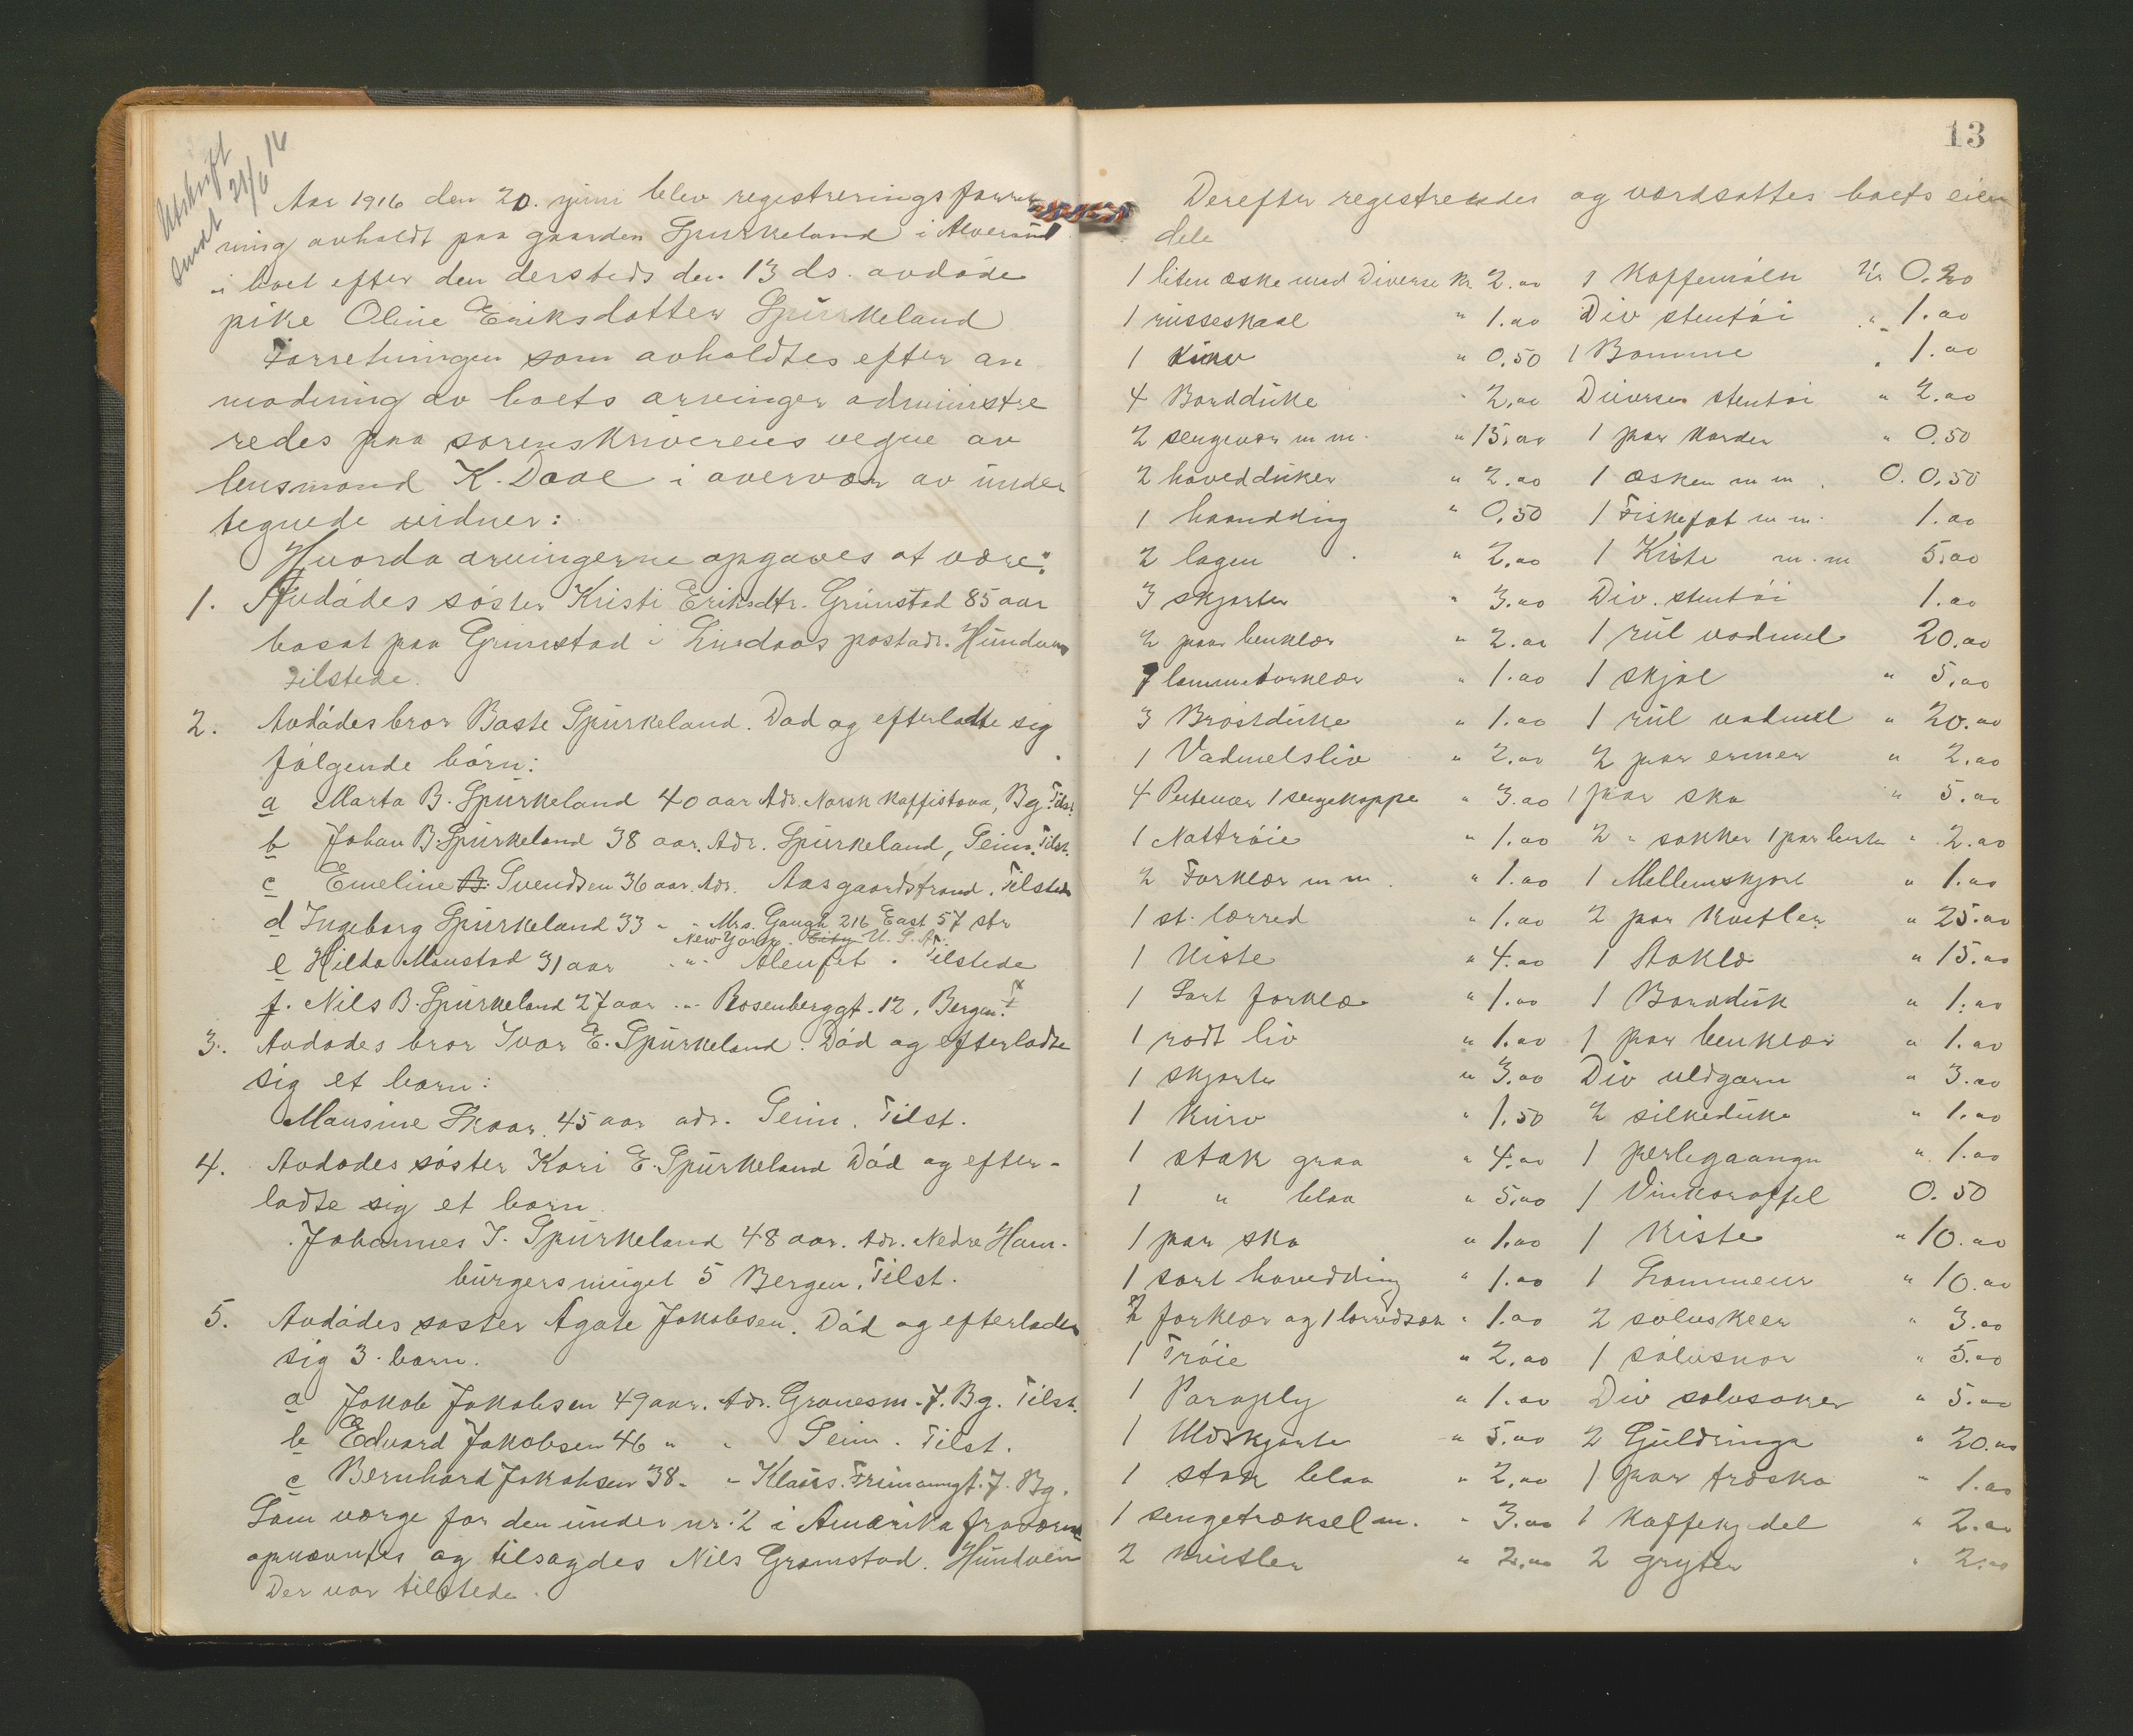 Utskrift
sendt 21/6 16
Aar 1916 den 20. juni blev registreringsforret
ning avholdt paa gaarden Spurkeland i Alversund
i boet efter den dersteds den 13 ds. avdøde
pike Oline Eriksdatter Spurkeland
Forretningen som avholdtes efter an
modning av boets arvinger administre
redes paa sorenskriverens vegne av
lensmand K. Daae i overvær av under
tegnede vidner:
Hvorda arvingerne opgaves at være:
1. Avdødes søster Kristi Eriksdtr. Grimstad 85 aar
bosat paa Grimstad i Lindaas postadr. Hundven
tilstede.
2. Avdødes bror Baste Spurkeland. Død og efterladte sig
følgende børn:
a Marta B. Spurkeland 40 aar Adr. Norsk Kaffistova, Bg. Tilst.
b Johan B. Spurkeland 38 aar. Adr. Spurkeland, Seim. Tilst.
c Emeline B. Svendsen 36 aar. Adr. Aasgaardstrand. Tilstede
d Ingeborg Spurkeland 33 " " Mrs. Gaugh 216 East 57 str
New York. City U. S. A.
e Hilda Monstad 31 aar " " Alenfit. Tilstede
f. Nils B. Spurkeland 27 aar " " Rosenberggt. 12. Bergen. T
3. Avdødes bror Ivar E. Spurkeland. Død og efterladte
sig et barn:
Mansine Skaar. 45 aar adr. Seim. Tilst.
4. Avdødes søster Kari E. Spurkeland Død og efter-
ladte sig et barn.
Johannes J. Spurkeland 48 aar. Adr. Nedre Ham-
burgersmuget 5 Bergen. Tilst.
5. Avdødes søster Agate Jakobsen. Død og efterlader
sig 3 barn.
a Jakob Jakobsen 49 aar. Adr. Grønesm. 7. Bg. Tilst.
b Edvard Jakobsen 46 " " Seim. Tilst.
c Bernhard Jakobsen 38 " " Klaus. Frimannsgt. 7. Bg.
Som verge for den under nr. 2 i Amerika fraværende
opnævntes og tilsagdes Nils Gramstad. Hundven
Der var tilstede.
13
Derefter registredes og værdsattes boets eien
dele
1 liten æske med Diverse kr. 2.00 1 Kaffemøln kr 0.20
1 russeskaal " 1.00 Div stentøi " 1.00
1 Kurv " 0.50 1 Bomme " 1.00
4 Bordduke " 2.00 Diverse stentøi " 2.00
2 sengevær m m. " 15.00 1 par Karder " 0.50
2 hovedduker " 2.00 1 æsken m m. 0. 0.50
1 haandding " 0.50 1 Fiskefat m m. 1.00
2 lagen " 2.00 1 Kiste m. m 5.00
3 skjorter " 3.00 Div. stentøi 1.00
2 par benklær " 2.00 1 rul vadmel 20.00
7 lommetørklær " 1.00 1 skjøl " 5.00
3 Brøstduke " 1.00 1 rul vadmel " 20.00
1 Vadmelsliv " 2.00 2 par ermer " 2.00
4 Putevær 1 sengekappe " 3.00 1 par sko " 5.00
1 Nattrøie " 1.00 2 " sokker 1 par lester " 2.00
2 Forklær m m. " 1.00 1 Mellemskjørt " 1.00
1 st. lærred " 1.00 2 par Kvitler " 25.00
1 Kiste " 4.00 1 Aaklæ " 15.00
1 Sort forklæ " 1.00 1 Borddúk " 1.00
1 rødt liv " 1.00 1 par benklær " 1.00
1 skjorte " 3.00 Div uldgarn " 3.00
1 Kurv " 1.50 2 silkeduke " 1.00
1 stak graa " 4.00 1 perlegaangn " 1.00
1 " blaa " 5.00 1 Vinkaraffel 0.50
1 par sko " 1.00 1 Kiste " 10.00
1 sort hovedding " 1.00 1 Lommeur " 10.00
2 forklær og 1 lærredsæk " 1.00 2 sølvskeer " 3.00
1 Trøie " 2.00 1 sølvsnor " 5.00
1 Paraply " 1.00 Div sølvsaker " 5.00
1 Uldskjorte " 5.00 2 Guldringe " 20.00
1 stak blaa " 2.00 1 par træsko " 1.00
1 sengetræksel m. " 3.00 1 Kaffekjedel " 2.00
2 kvitler " 2.00 2 gryter " 2.00